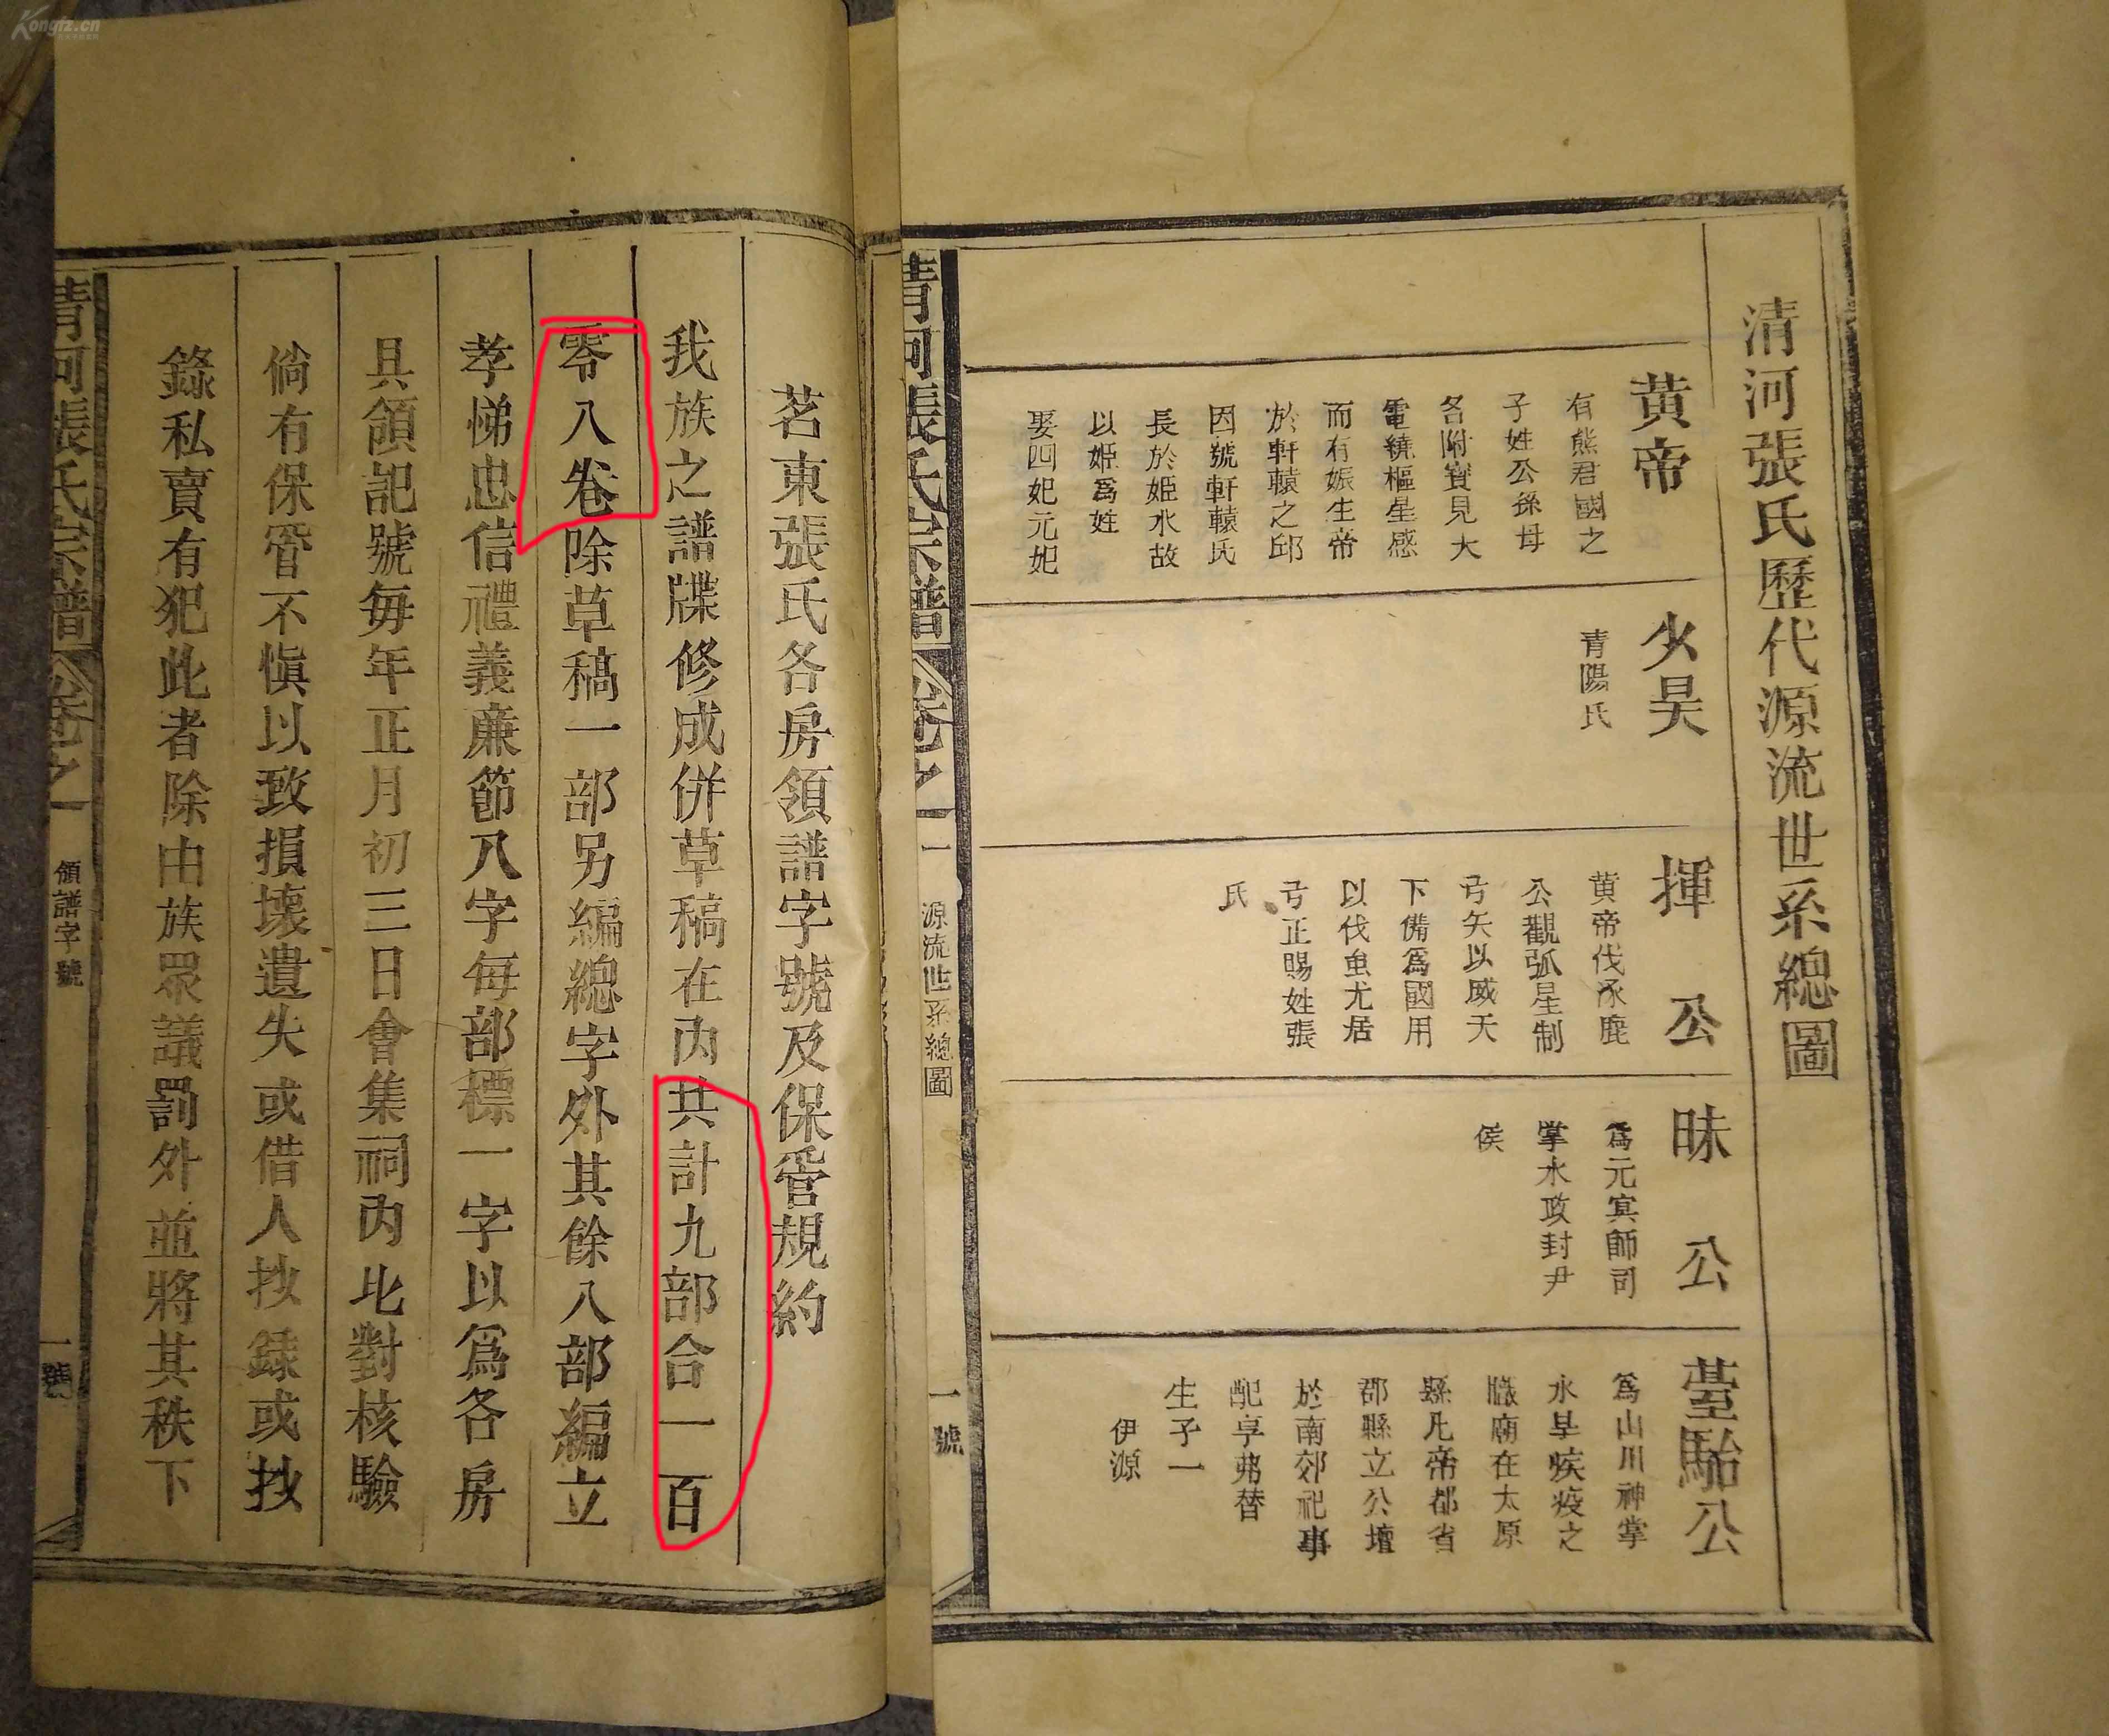 Kongfz.cn
清河張氏歷代源流世系總圖
黄帝
有熊君國之
子姓公孫母
名附寶見大
電繞樞星感
而有娠生帝
於軒轅之邱
因號軒轅氏
長於姬水故
以姬爲姓
娶四妃元妃
少昊
青陽氏
揮公
黄帝伐涿鹿
公觀弧星制
弓矢以威天
下備爲國用
以伐蚩尤居
弓正賜姓張
氏
昧公
爲元冥師司
掌水政封尹
侯
臺駘公
爲山川神掌
水旱疾疫之
職廟在太原
縣凡帝都省
郡縣立公壇
於南郊祀事
配享弗替
生子一
伊源
清河張氏宗譜
卷之一
源流世系總圖
一號
茗東張氏各房領譜字號及保管規約
我族之譜牒修成併草稿在內共計九部合一百
零八卷除草稿一部另編總字外其餘八部編立
孝悌忠信禮義廉節八字每部標一字以爲各房
具領記號每年正月初三日會集祠內比對核驗
倘有保管不慎以致損壞遺失或借人抄錄或抄
錄私賣有犯此者除由族眾議罰外並將其秩下
清河張氏宗譜
卷之一
領譜字號
一號